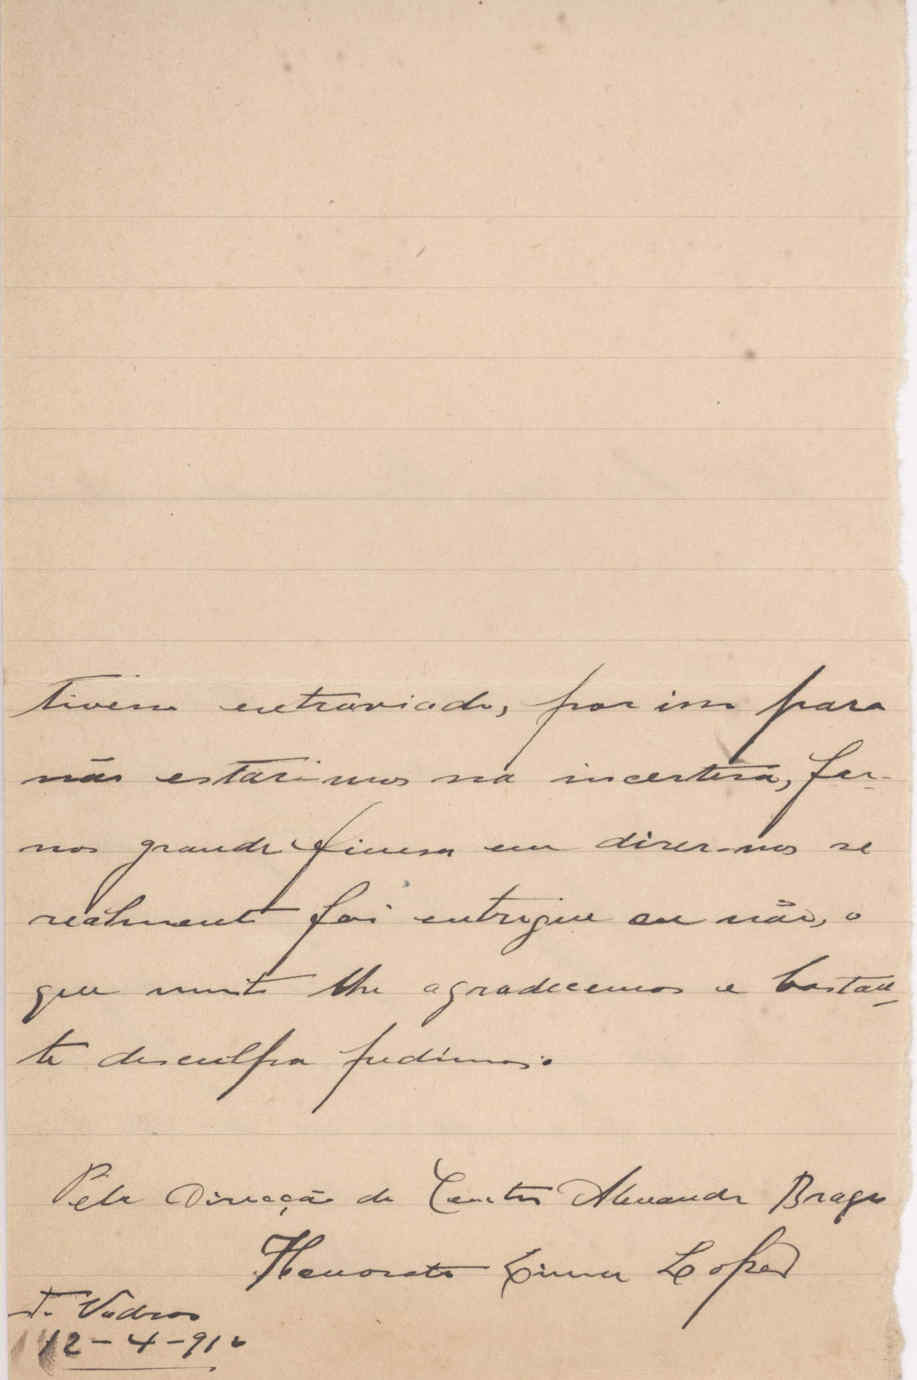 tivesse extraviado, por isso para
não estarimos na incertesa, fas-
nos grande finesa em diser-nos se
realmente foi entregue ou não, o
que muito lhe agradecemos e bastan-
te desculpa pedimos.
Pela Direcção do Centro Alexandre Braga
Honorato Lopes
T. Vedras
12-4-91